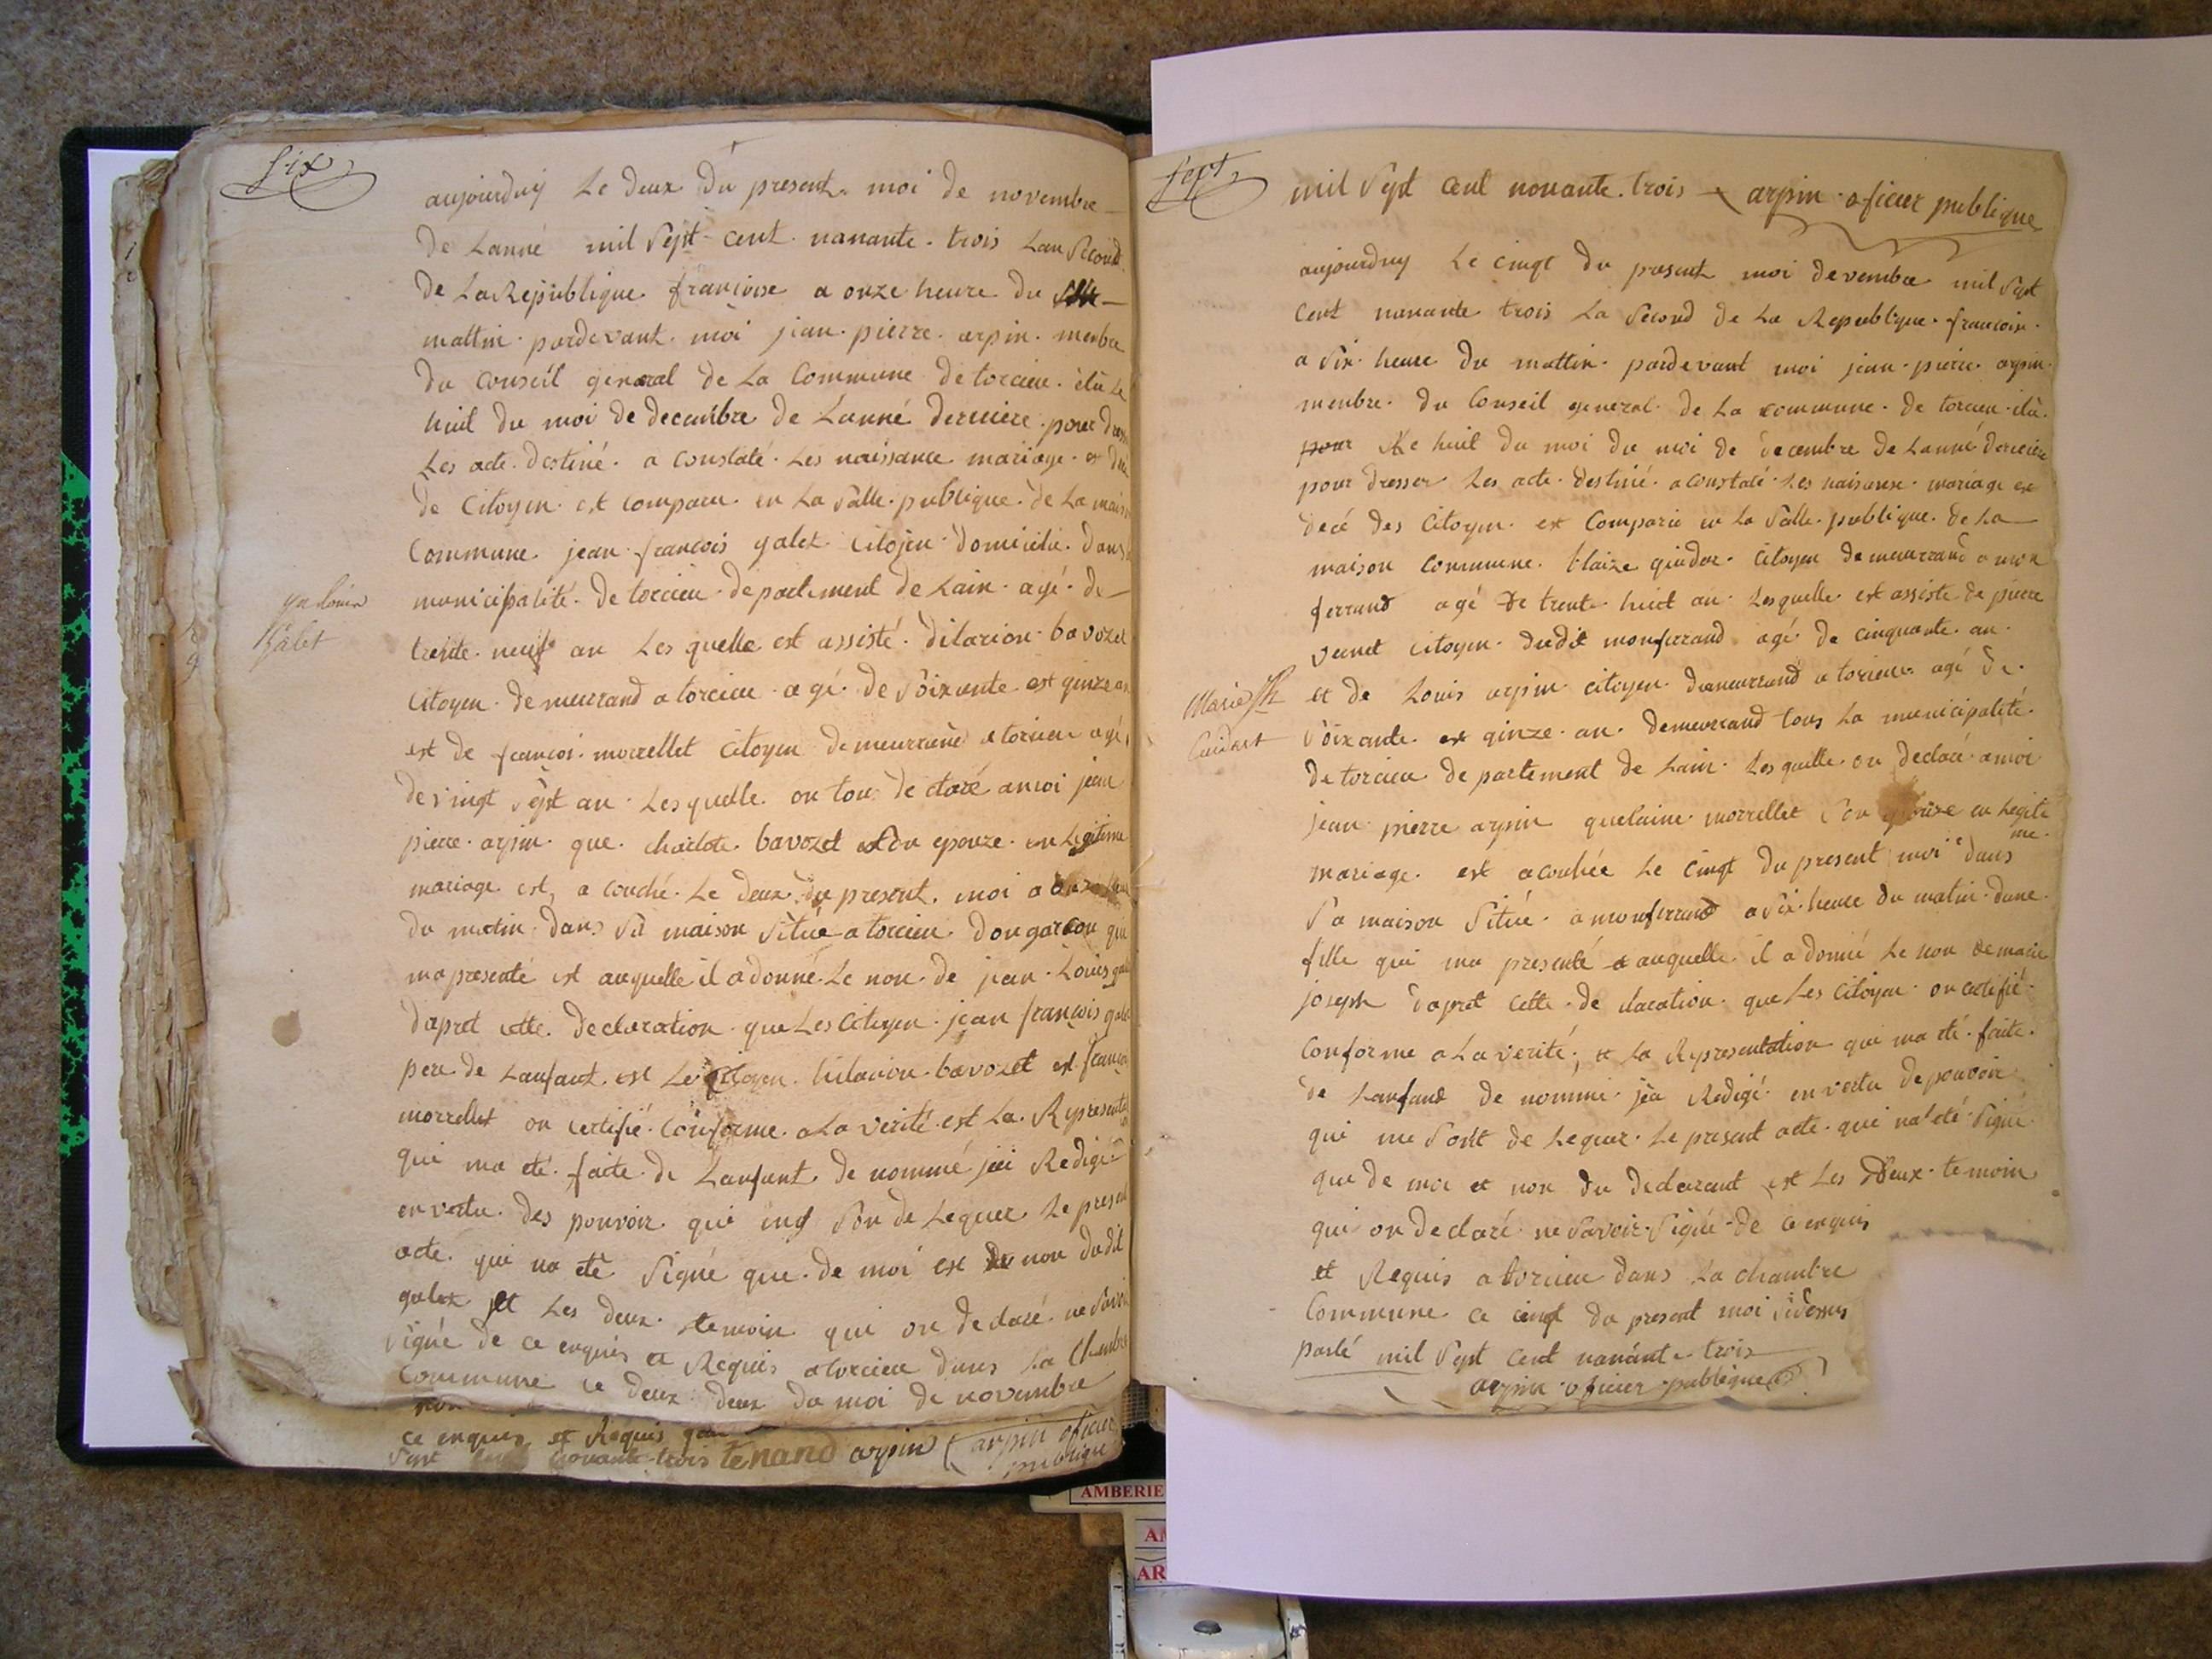 six
aujourduy Le deux du present moi de novembre
de Lanné mil sept cent nanante trois Lan second
de La Republique francoise a onze heure du
mattin pardevant moi jean pierre arpin menbre
du conseil general de La Commune de torcieu élu Le
huit du moi de decembre de Lanné derniere pour
Les acte destiné a constaté Les naissance mariage et
de Citoyen est comparu en La salle publique de La
Commune jean francois galet citoyen domicilié dans
municipalité de torcieu departement de Lain agé de
trente neuf an Lesquelle est assisté dilarion bavozet
Citoyen demeurrand a torcieu agé de soixante est ginze an
est de francoi morrellet Citoyen demeurrand a torcieu agé
de vingt sept an Lesquelle on tou declaré a moi jean
pierre arpin que charlote bavozet son epouze en Legitime
mariage est acouché Le deux du present moi a
du matin dans sa maison située a torcieu dongarcon qui
ma presenté est auquelle il a donné Le non de jean Louis
dapret cette declaration que Les citoyen jean francois
pere de Lanfant est Le Citoyen hilarion bavozet est
morrellet on certifié conforme a La verité est La
qui ma eté faite de Lanfant denommé jai Redigé
en vertu des pouvoir qui son deleguer Le present
acte qui na eté signé que de moi est non dudit
galet et Les deux temoin qui on declaré ne
signé de ce enquis et Requis a torcieu dans La Chambre
Commune ce deux deux du moi de novembre
galet
ce enquis et Requis
sept nonante trois tenand arpin arpin oficier
publique
sept
mil sept cent nonante trois arpin oficier publique
aujourduy Le cinqt du present moi devembre mil sept
Cent nanante trois La second de La Republique francoise
a six heure du mattin pardevant moi jean pierre arpin
menbre du Conseil general de La commune de torcieu élu
pour Le huit du moi du moi de decembre de Lanné derniere
pour dresser Les acte destiné a constaté Les naissance mariage et
decé des Citoyen est Comparu en La salle publique de La
maison commune blaize guidor Citoyen demeurrand a mon
ferrand agé de trente huit an Lesquelle est assiste de pierre
vernet citoyen dudit monferrand agé de cinquante an
et de Louis arpin citoyen demeurrand a torcieu agé de
soixante et ginze an demeurrand tous La municipalité
de torcieu departement de Lain Lesquelle on declaré a moi
jean pierre arpin morrellet son epouze en Legite
me
mariage est acouhée Le cinqt du present moi dans
sa maison située a monferrand a six heure du matin dune
fille qui ma presenté auquelle il a donné Le non de marie
joseph dapret cette declaration que Les Citoyen on certifié
conforme a La verité et La Representation qui ma eté faite
de Lanfand denommé jéa Redigé en vertu de pouvoir
qui me sont deleguer Le present acte qui na eté signé
que de moi et non du declarant est Les deux temoin
qui on declaré ne savoir signé de ce enquis
et Requis a torcieu dans La chambre
Commune ce cinqt du present moi sidessus
parlé mil sept cent nanante trois
arpin oficier publique
Marie